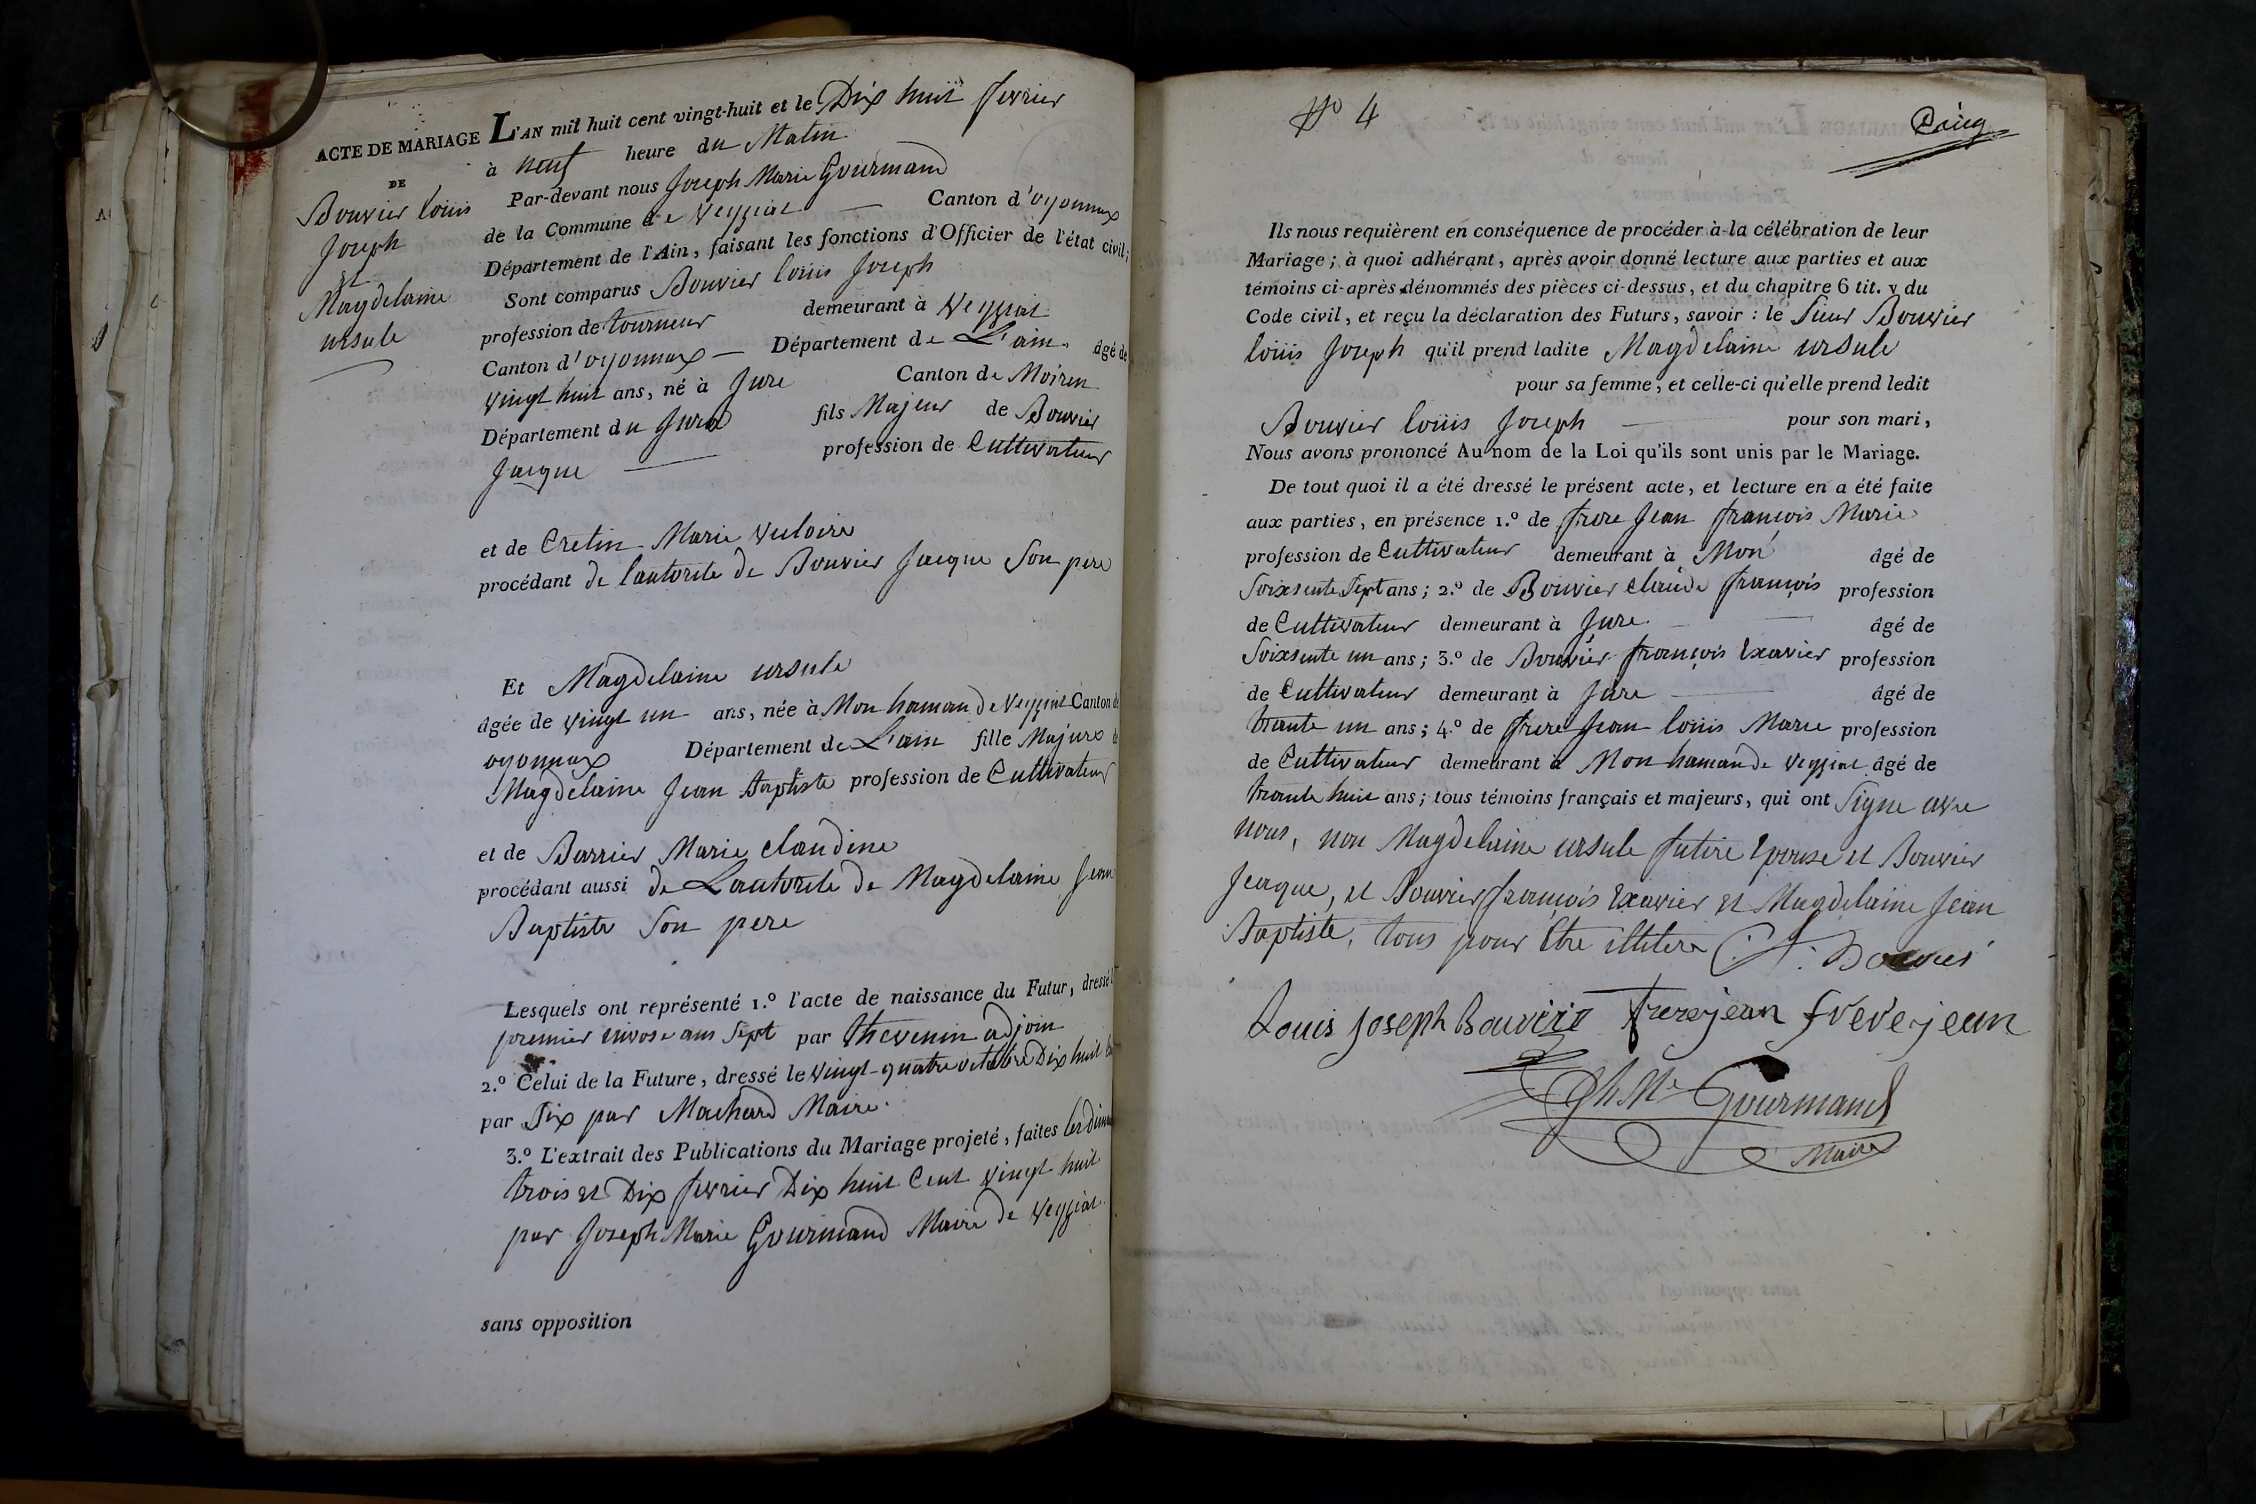 ACTE DE MARIAGE
DE
Bouvier louis
Joseph
Et
Magdelaine
ursule
L'AN mil huit cent vingt-huit et le Dix huit fevrier
à neuf heure du Matin
Par-devant nous Joseph Marie Gourmand
de la Commune de Veyziat Canton d'oyonnax
Département de l'Ain, faisant les fonctions d'Officier de l'état civil;
Sont comparus Bouvier louis Joseph
profession de tourneur demeurant à Veyziat
Canton d'oyonnax Département de L'ain. âgé de
vingt huit ans, né à Jure Canton de Moiren
Département du Jura fils Majeur de Bouvier
Jacque profession de Cultivateur
et de Cretin Marie Victoire
procédant de l'autorite de Bouvier Jacque Son pere
Et Magdelaine ursule
âgée de vingt un ans, née à Mon haman de Veyziat Canton d
oyonnax Département de L'ain fille Majure d
Magdelaine Jean Baptiste profession de Cultivateur
et de Barrier Marie claudine
procédant aussi de L'autorite de Magdelaine Jean
Baptiste Son pere
Lesquels ont représenté 1.º l'acte de naissance du Futur, dressé l
premier nivose ans Sept par thevenin adjoin
2.º Celui de la Future, dressé le vingt-quatre octobre Dix huit
par Six par Machard Maire.
3.º L'extrait des Publications du Mariage projeté, faites les
trois et Dix fevrier Dix huit Cent vingt huit
par Joseph Marie Gourmand Maire de Veyziat.
sans opposition
Nº 4
Cinq
Ils nous requièrent en conséquence de procéder à la célébration de leur
Mariage; à quoi adhérant, après avoir donné lecture aux parties et aux
témoins ci-après dénommés des pièces ci-dessus, et du chapitre 6 tit. v du
Code civil, et reçu la déclaration des Futurs, savoir: le Sieur Bouvier
louis Joseph qu'il prend ladite Magdelaine ursule
pour sa femme, et celle-ci qu'elle prend ledit
Bouvier louis Joseph pour son mari,
Nous avons prononcé Au nom de la Loi qu'ils sont unis par le Mariage.
De tout quoi il a été dressé le présent acte, et lecture en a été faite
aux parties, en présence 1.º de frere Jean françois Marie
profession de Cultivateur demeurant à Mon âgé de
Soixsente Sept ans; 2.º de Bouvier claude françois profession
de Cultivateur demeurant à Jure. âgé de
Soixsente un ans; 3.º de Bouvier françois Exavier profession
de Cultivateur demeurant à Jure âgé de
trante un ans; 4.º de frere Jean louis Marie profession
de Cultivateur demeurant à Mon haman de Veyziat âgé de
trante huit ans; tous témoins français et majeurs, qui ont Signe avec
nous, non Magdelaine ursule future Epouse et Bouvier
Jacque, et Bouvier françois Exavier et Magdelaine Jean
Baptiste, tous pour Etre illitere C. f. Bouvier
Louis Joseph Bouvier frerejean frerejean
Jph Mie Gourmand
Maire